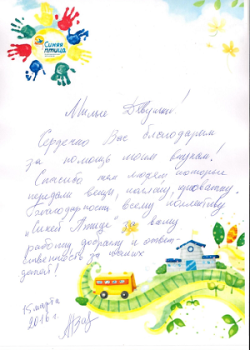 Синяя
птица
Милые Девушки!
Сердечно Вас благодарим
за помощь моим внукам!
Спасибо тем людям которые
передали вещи, коляску, кроватку.
Благодарность всему коллективу
"Синей Птицы" за вашу
работу, доброту и ответ-
ственность за наших
детей!
15 марта
2016 г.